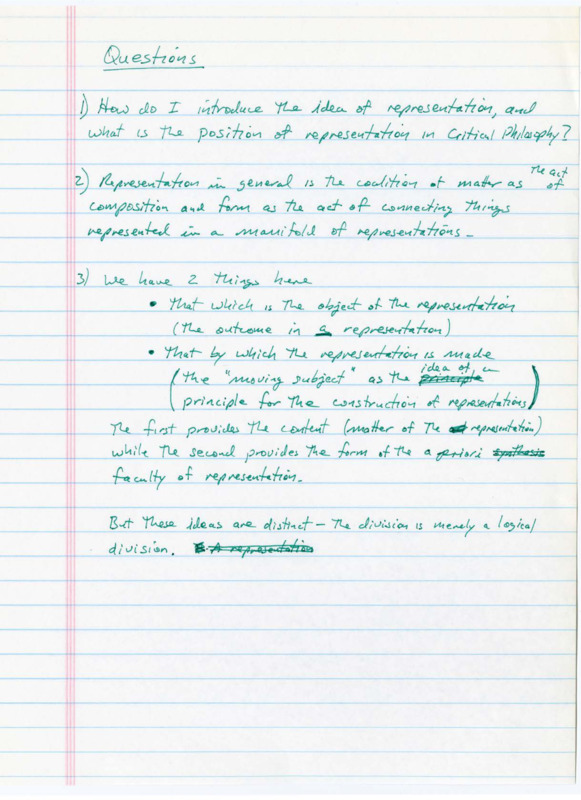 Questions
1) How do I introduce the idea of representation, and
what is the position of representation in Critical Philosophy?
2) Representation in general is the coalition of matter as the act of
composition and form as the act of connecting things
represented in a manifold of representations.
3) We have 2 things here
• that which is the object of the representation
(the outcome in a representation)
• that by which the representation is made
(the "moving subject" as the principle idea of a
principle for the construction of representations)
The first provides the content (matter of the representation)
while the second provides the form of the a priori synthesis
faculty of representation.
But these ideas are distinct – the division is merely a logical
division. A representation